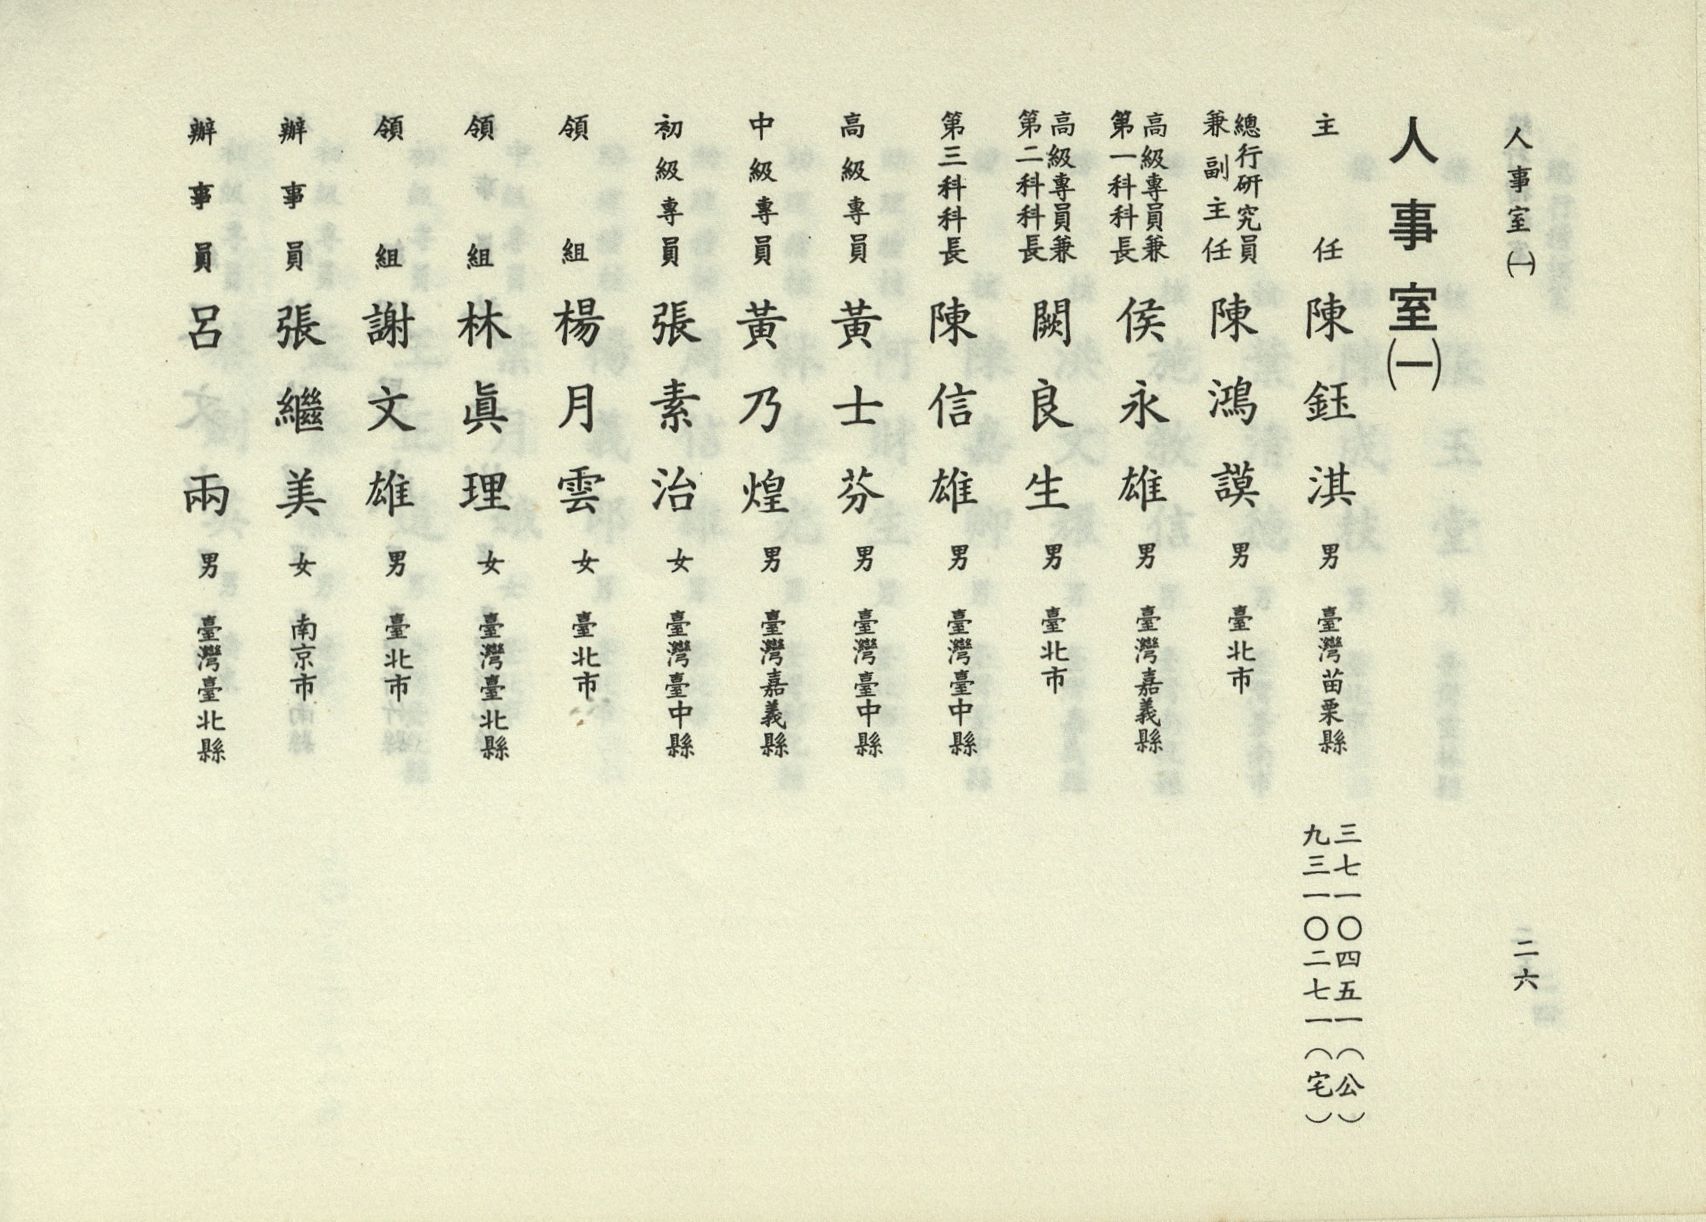 人事室㈠
二六
人事室㈠
主任 陳鈺淇 男 臺灣苗栗縣 三七一〇四五一（公） 九三一〇二七一（宅）
總行研究員兼副主任 陳鴻謨 男 臺北市
高級專員兼第一科科長 侯永雄 男 臺灣嘉義縣
高級專員兼第二科科長 闕良生 男 臺北市
第三科科長 陳信雄 男 臺灣臺中縣
高級專員 黃士芬 男 臺灣臺中縣
中級專員 黃乃煌 男 臺灣嘉義縣
初級專員 張素治 女 臺灣臺中縣
領組 楊月雲 女 臺北市
領組 林眞理 女 臺灣臺北縣
領組 謝文雄 男 臺北市
辦事員 張繼美 女 南京市
辦事員 呂文兩 男 臺灣臺北縣